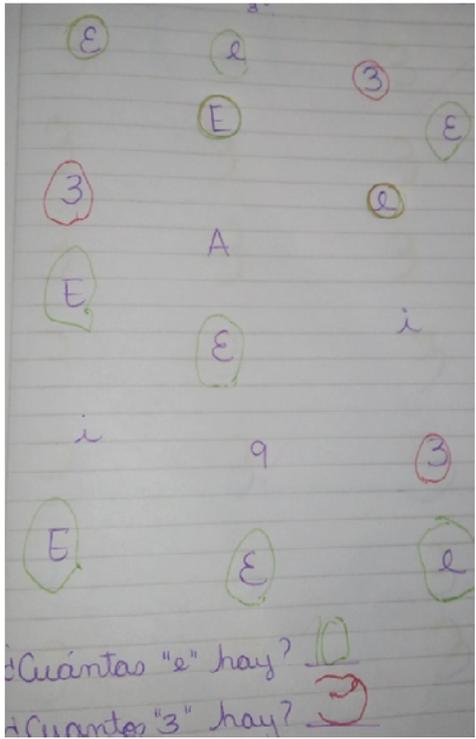 Ɛ e 3
E Ɛ
3 e
A
E i
Ɛ
i 9 3
E Ɛ e
¿Cuántas "e" hay? 10
¿Cuantos "3" hay? 3